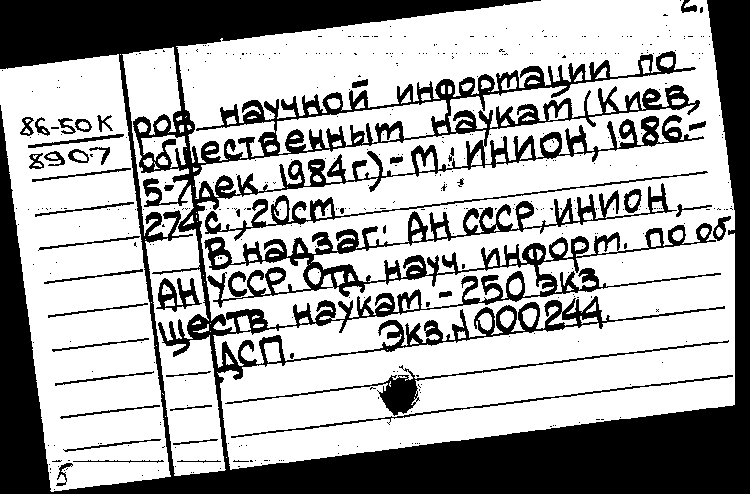 2.
86-50К
8907
ров научной информации по
общественным наукам (Киев,
5-7 дек. 1984 г.).- М.: ИНИОН, 1986.-
274 с.; 20 см.
В надзаг.: АН СССР, ИНИОН,
АН УССР. Отд. науч. информ. по об-
ществ. наукам. - 250 экз.
ДСП. Экз. N 000244.
Б